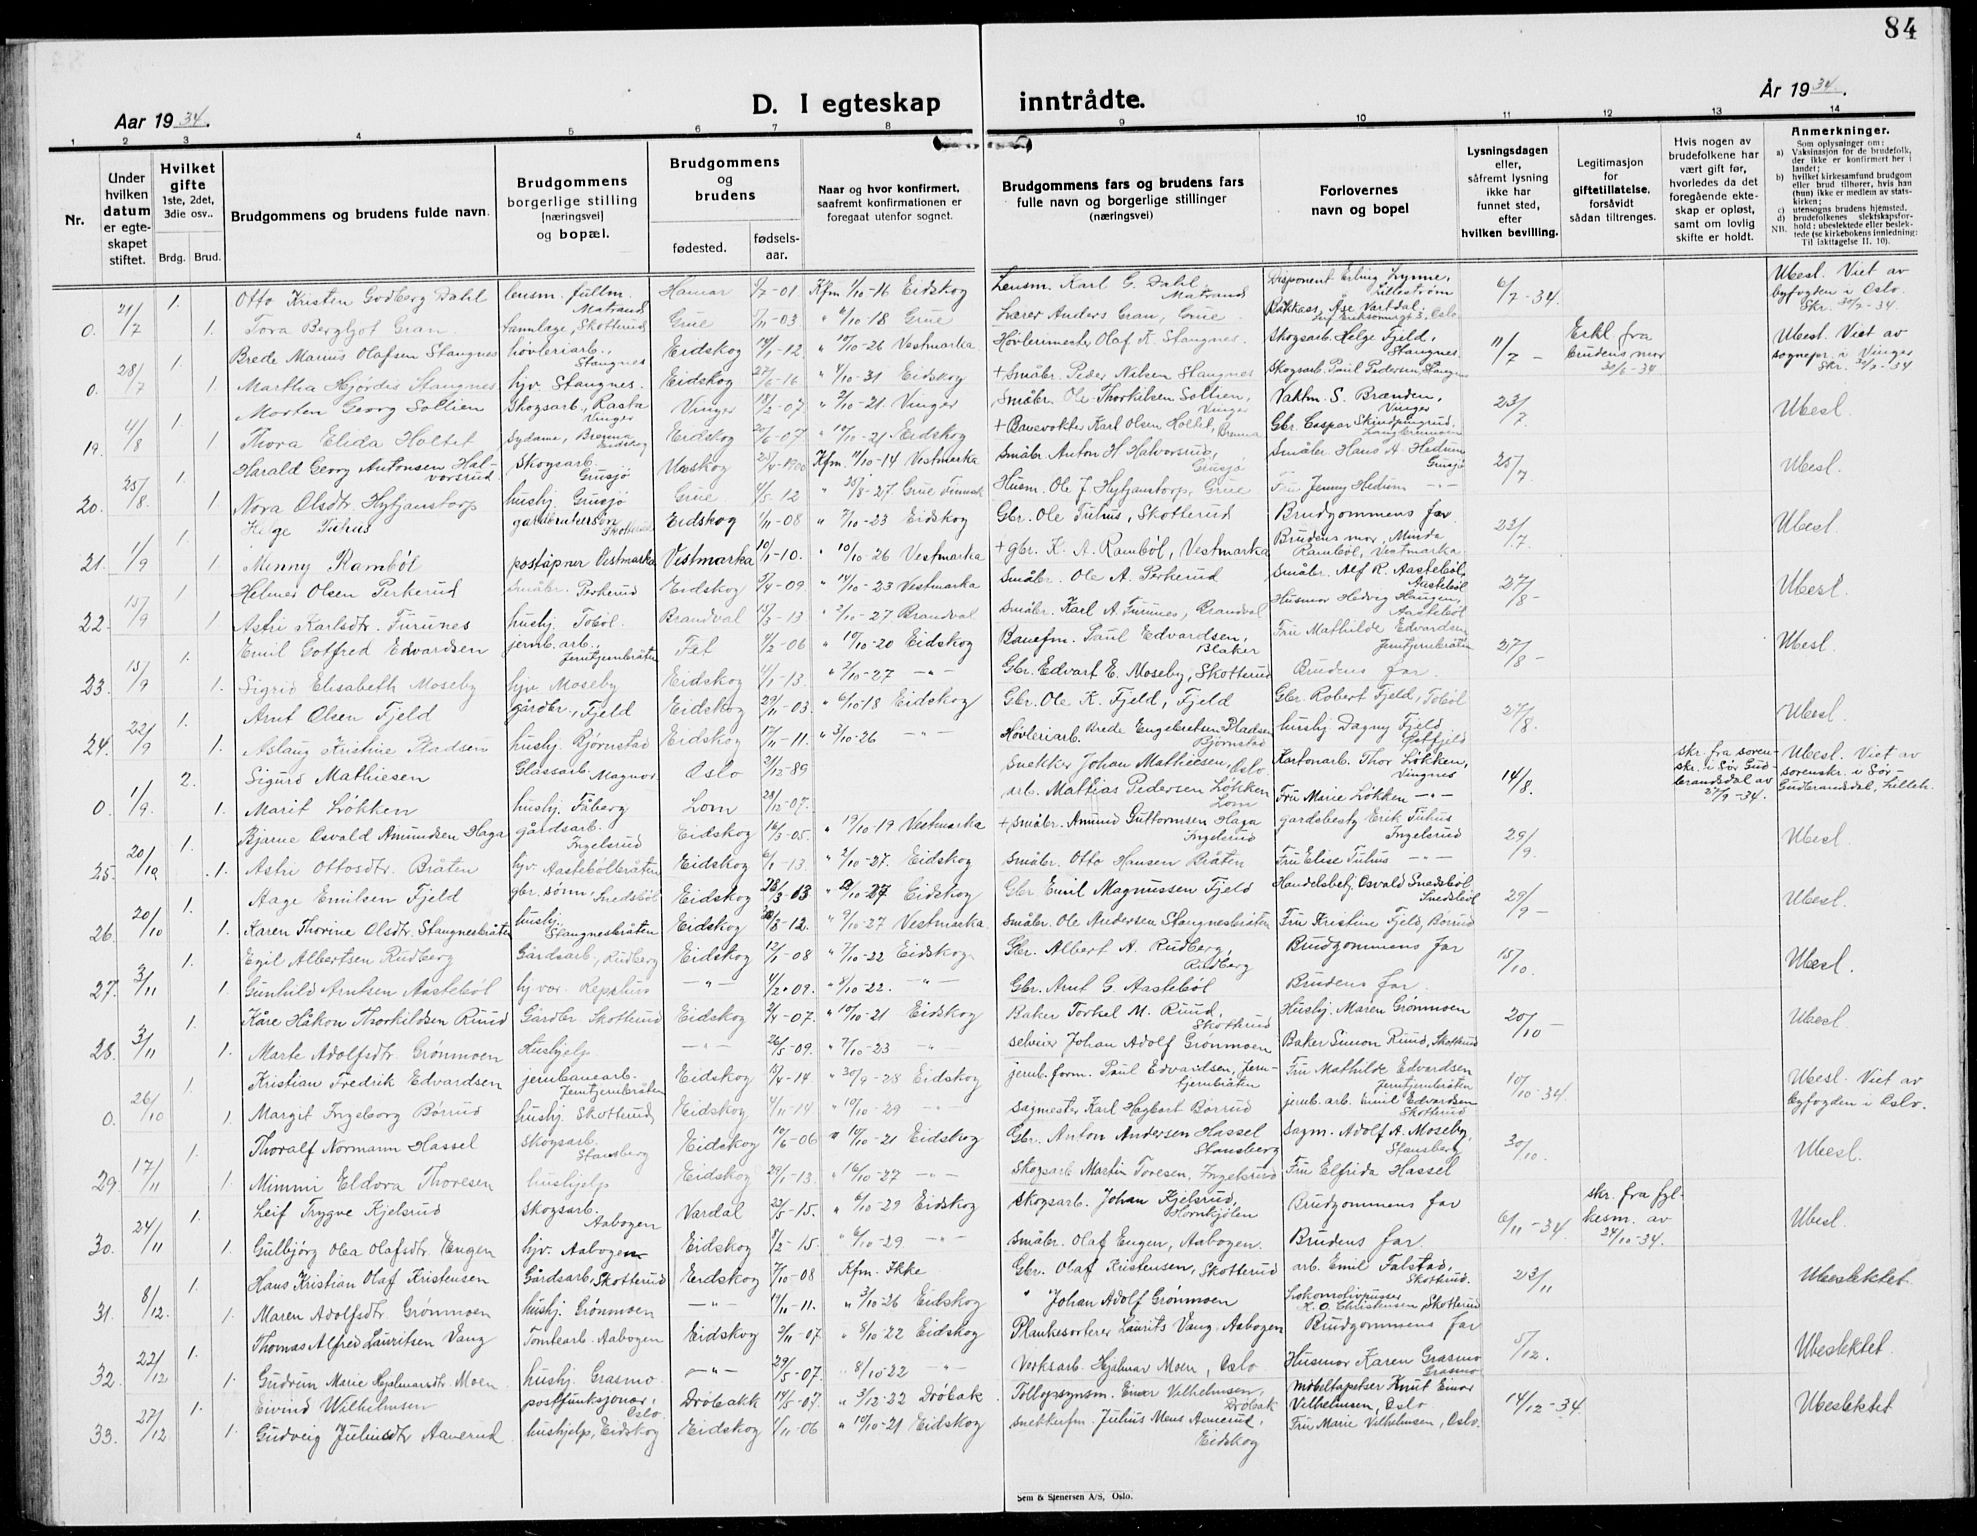 84
D. I egteskap inntrådte.
Aar 1934.
År 1934.
1 2 3 4 5 6 7 8 9 10 11 12 13 14
Nr.
Under hvilken datum er egteskapet stiftet.
Hvilket gifte 1ste, 2det, 3die osv..
Brdg. Brud.
Brudgommens og brudens fulde navn.
Brudgommens borgerlige stilling [næringsvei] og bopæl.
Brudgommens og brudens
fødested. fødsels-aar.
Naar og hvor konfirmert, saafremt konfirmationen er foregaat utenfor sognet.
Brudgommens fars og brudens fars fulle navn og borgerlige stillinger (næringsvei)
Forlovernes navn og bopel
Lysningsdagen eller, såfremt lysning ikke har funnet sted, efter hvilken bevilling.
Legitimasjon for giftetillatelse, forsåvidt sådan tiltrenges.
Hvis nogen av brudefolkene har vært gift før, hvorledes da det foregående ekteskap er opløst, samt om lovlig skifte er holdt.
Anmerkninger.
Som oplysninger om:
a) Vaksinasjon for de brudefolk, der ikke er konfirmert her i landet;
b) hvilket kirkesamfund brudgom eller brud tilhører, hvis han (hun) ikke er medlem av statskirken;
c) utensogns brudens hjemsted.
d) brudefolkenes slektskapsforhold: ubeslektede eller beslektede (se kirkebokens innledning: Til iakttagelse II. 10).
NB.
0. 21/7 1. Otto Kristen Godberg Dahl lensm. fullm. Matrand Hamar 9/7-01 Kfm 1/10-16 Eidskog Lensm. Karl G. Dahl, Matrand Disponent Erling Lynne, Lillestrøm 6/7-34. Ubesl. Viet av byfogden i Oslo.
1. Tora Bergljot Gran Tannlæge, Skotterud Grue 5/11-03 " 6/10-18 Grue Lærer Anders Gran, Grue
0. 28/7 1. Brede Marius Olafsen Stangnes høvleriarb., Stangnes Eidskog 14/1-12 " 10/10-26 Vestmarka Høvlerimester Olaf K. Stangnes. Skogsarb. Helge Fjeld, Stangnes. 11/7 - Erkl fra brudens mor 30/6-34 Ubesl. Viet av sognepr. i Vinger
1 Martha Hjørdis Stangnes hjv. Stangnes. Eidskog 27/6-16 " 4/10-31 Eidskog + Småbr. Peder Nilsen Stangnes Skogsarb. Paul Pedersen, Stangnes
19. 4/8 1. Morten Georg Soltien Skogsarb., Rasta Vinger Vinger 18/2-07 " 2/10-21 Vinger Småbr. Ole Thorkilsen Soltien, Vinger Vaktm. S. Brænden, Vinger 23/7 Ubesl.
1 Thora Elida Holtet Sydame, Brenna Eidskog Eidskog 20/6-07 " 10/10-21 Eidskog + Banevokter Karl Olsen Holtet, Brenna Gbr. Caspar
20. 25/8. 1. Harald Georg Antonsen Halvorsrud Skogsarb. Grusjø Eidskog 25/4-1900 Kfm. 11/10-14 Vestmarka Småbr. Anton H Halvorsrud, Grusjø Småbr Hans A. Hedum Grusjø 25/7. Ubesl.
1 Nora Olsdtr. Hytjanstorp hushj. Grusjø Grue 4/5-12 " 25/8-27 Grue Finnsk. Husm. Ole J. Hytjanstorp, Grue Fru Jenny Hedum -"-
21. 1/9 1. Helge Tuhus Skotterud Eidskog 1/11-08 " 7/10-23 Eidskog Gbr. Ole Tuhus, Skotterud Brudgommens far 23/7. Ubesl
1 Menny Rambøl poståpner Vestmarka Vestmarka 10/1-10. " 10/10-26 Vestmarka + gbr. K. A. Rambøl, Vestmarka Brudens mor, Minda Rambøl, Vestmarka
22. 15/9 1 Helmer Olsen Perkerud Småbr. Perkerud Eidskog 3/4-09 " 14/10-23 Vestmarka Småbr. Ole A. Perkerud Småbr. Alf R. Aastebøl, Aastebøl 27/8- Ubesl.
1 Astri Karlsdtr. Furunes hushj. Tobøl. Brandval 15/3-13 " 2/10-27 Brandval Småbr. Karl A. Furunes, Brandval Husmor Hedvig Haugen, Aastebøl
23. 15/9 1. Emil Gotfred Edvardsen jernb.arb., Jerntjernbråten Fet 4/2-06 " 10/10-20 Eidskog Banefm. Paul Edvardsen, Blaker Fru Mathilde Edvardsen Jerntjernbråten 27/8- Ubesl.
1. Sigrid Elisabeth Moseby hjv Moseby Eidskog 4/1-13. " 2/10-27 -"- Gbr. Edvart E. Moseby, Skotterud Brudens far.
24. 22/9 1. Arnt Olsen Fjeld gårdbr., Fjeld Eidskog 29/11-03. " 6/10-18 Eidskog Gbr. Ole K. Fjeld, Fjeld Gbr. Robert Fjeld, Tobøl 27/8. Ubesl.
1. Aslaug Kristine Pladsen hushj Bjørnstad Eidskog 17/11-11. " 3/10-26 -"- Høvleriarb. Brede Engebretsen Pladsen Bjørnstad hushj Dagny Fjeld Østfjeld
0. 1/9. 2. Sigurd Mathiesen Glassarb. Magnor Oslo 21/12-89 Snekker Johan Mathiesen, Oslo Kartonarb. Thor Løkken, Vingnes 14/8. skr. fra sorenskr. i Sør Gudbrandsdal av 27/9-34. Ubesl. Viet av sorenskr. i Sør-Gudbrandsdal, Lilleh.
1. Marit Løkken hushj. Fåberg Lom 28/12-07. arb. Mattias Pedersen Løkken Lom Fru Marie Løkken -"-
25. 20/10 1. Bjarne Osvald Amundsen Haga gårdsarb. Ingelsrud Eidskog 16/3-05. " 19/10-19 Vestmarka + Småbr. Amund Guttormsen Haga Ingelsrud Gardsbest. Erik Tuhus Ingelsrud 29/9. Ubesl.
1. Astri Ottosdtr. Bråten hjv Aastebølbråten Eidskog 6/1-13. " 2/10-27. Eidskog Småbr. Otto Hansen Bråten Fru Elise Tuhus -"-
26. 20/10 1. Aage Emilsen Fjeld gbr. sønn, Snedsbøl Eidskog 28/3-03 Eidskog Gbr Emil Magnussen Fjeld Handelsbetj. Osvald Snedsbøl Snedsbøl 29/9- Ubesl.
1. Karen Thorine Olsdtr. Stangnesbråten hushj. Stangnesbråten Eidskog 3-12. " 2/10-27 Vestmarka. Småbr. Ole Andersen Stangnesbråten Fru Kristine Fjeld, Børrud
27. 3/11 1. Egil Albertsen Rudberg Gårdsarb., Rudberg Eidskog 12/1-08 " 7/10-22 Eidskog. Gbr. Albert A. Rudberg, Rudberg Brudgommens far 15/10. Ubesl.
1 Gunhild Arntsen Aastebøl hj.vær. Repshus -"- 4/2-09. " 8/10-22. -"- Gbr. Arnt G. Aastebøl Brudens far.
28. 3/11 1. Kåre Håkon Thorkildsen Ruud Gårdbr. Skotterud Eidskog 3/4-07. " 10/10-21 Eidskog Baker Torkel M. Ruud, Skotterud Hushj. Maren Grønmoen 20/10- Ubesl.
1. Marte Adolfsdtr. Grønmoen Hushjelp -"- 26/5-09. " 7/10-23 -"- selveier Johan Adolf Grønmoen Baker Simon Ruud, Skotterud
0. 26/10 1. Kristian Fredrik Edvardsen jernbanearb. Jerntjernbråten Eidskog 15/4-14 " 30/9-28 Eidskog jernb. form. Paul Edvardsen, Jerntjernbråten Fru Mathilde Edvardsen Jerntjernbråten 10/10-34. Ubesl. Viet av byfogden i Oslo.
1 Margit Ingeborg Børrud hushj. Skotterud Eidskog 4/11-14 " 10/10-29 -"- Sagmester Karl Hagbart Børrud jernb. arb. Emil Edvardsen Skotterud
29 17/11 1. Thoralf Normann Hassel skogsarb. Stansberg Eidskog 10/6-06 " 10/10-21 Eidskog Gbr. Anton Andersen Hassel Stansberg Sagm. Adolf A. Moseby, Stansberg 30/10. Ubesl.
1. Mimmi Eldora Thoresen hushjelp Eidskog 29/1-13. " 16/10-27 -"- Skogsarb Martin Toresen, Ingelsrud Fru Elfrida Hassel
30. 24/11 1. Leif Trygve Kjelsrud skogsarb. Aabogen Vardal 23/5-15. " 6/10-29 Eidskog skogsarb. Johan Kjelsrud, Hornkjølen Brudgommens far 6/11-34. skr. fra fylkesm. av 24/10-34. Ubesl.
1. Gulbjørg Olea Olafsdtr. Engen hjv. Aabogen Eidskog 9/2-15. " 6/10-29 -"- Småbr. Olaf Engen, Aabogen. Brudens far.
31. 8/12. 1. Hans Kristian Olaf Kristensen Gårdsarb, Skotterud Eidskog 7/10-08 Kfm. Ikke Gbr. Olaf Kristensen, Skotterud arb. Emil Falstad, Skotterud. 23/11 Ubeslektet.
1. Maren Adolfsdtr. Grønmoen hushj. Grønmoen -"- 17/11-11. " 3/10-26 Eidskog " Johan Adolf Grønmoen Lokomotivpusser K. O. Christensen, Skotterud
32. 22/12 1. Thomas Alfred Lauritsen Vang Tomtearb. Aabogen Eidskog 3/11-07. " 8/10-22 Eidskog Plankesorterer Laurits Vang. Aabogen Brudgommens far 5/12. Ubeslektet.
1. Gudrun Marie Hjalmarsdtr. Moen hushj. Grasmo. -"- 29/5-07. " 8/10-22 -"- Verksarb. Hjalmar Moen, Oslo Husmor Karen Grasmo Grasmo
33. 27/12 1. Eivind Wilhelmsen postfunksjonær, Oslo Drøbakk 14/5-07. " 3/12-22 Drøbak Tollopsynsm. Einar Vilhelmsen, Drøbak Møbeltapetser Knut Einar Vilhelmsen, Oslo 14/12-34 Ubeslektet
1. Gudveig Juliusdtr Aanerud hushjelp, Eidskog Eidskog 1/11-06 " 10/10-21 Eidskog Snekkerfm. Julius Aanerud, Eidskog Fru Marie Vilhelmsen, Oslo.
Sem & Stenersen A/S, Oslo.